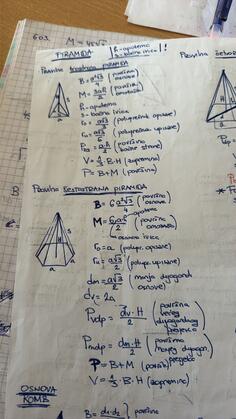 603. M = 48√5
PIRAMIDA
h - apotema
s - bočna ivica !
Pravilna trostrana PIRAMIDA
B = a²√3/4 (površina osnove)
M = 3ah/2 (površina omotača)
h - apotema
s - bočna ivica
ro = a√3/3 (poluprečnik opisane)
ru = a√3/6 (poluprečnik upisane)
Pbs = ah/2 (površina bočne strane)
V = 1/3 · B · H (zapremina)
P = B + M (površina)
Pravilna ŠESTOSTRANA PIRAMIDA
B = 6 a²√3/4 (površina osnove)
M = 6ah/2 (površina omotača)
apotema
osnovna ivica
ro = a (polupr. opisane)
ru = a√3/2 (polupr. upisane)
dm = a√3 (manja dijagonala osnove)
dv = 2a
Pvdp = dv · H/2 (površina većeg dijagonalnog preseka)
Pmdp = dm · H/2 (površina manjeg dijagon. preseka)
P = B + M (površ.)
V = 1/3 · B · H (zapremina)
OSNOVA
ROMB
B = d₁·d₂
površina
Pravilna